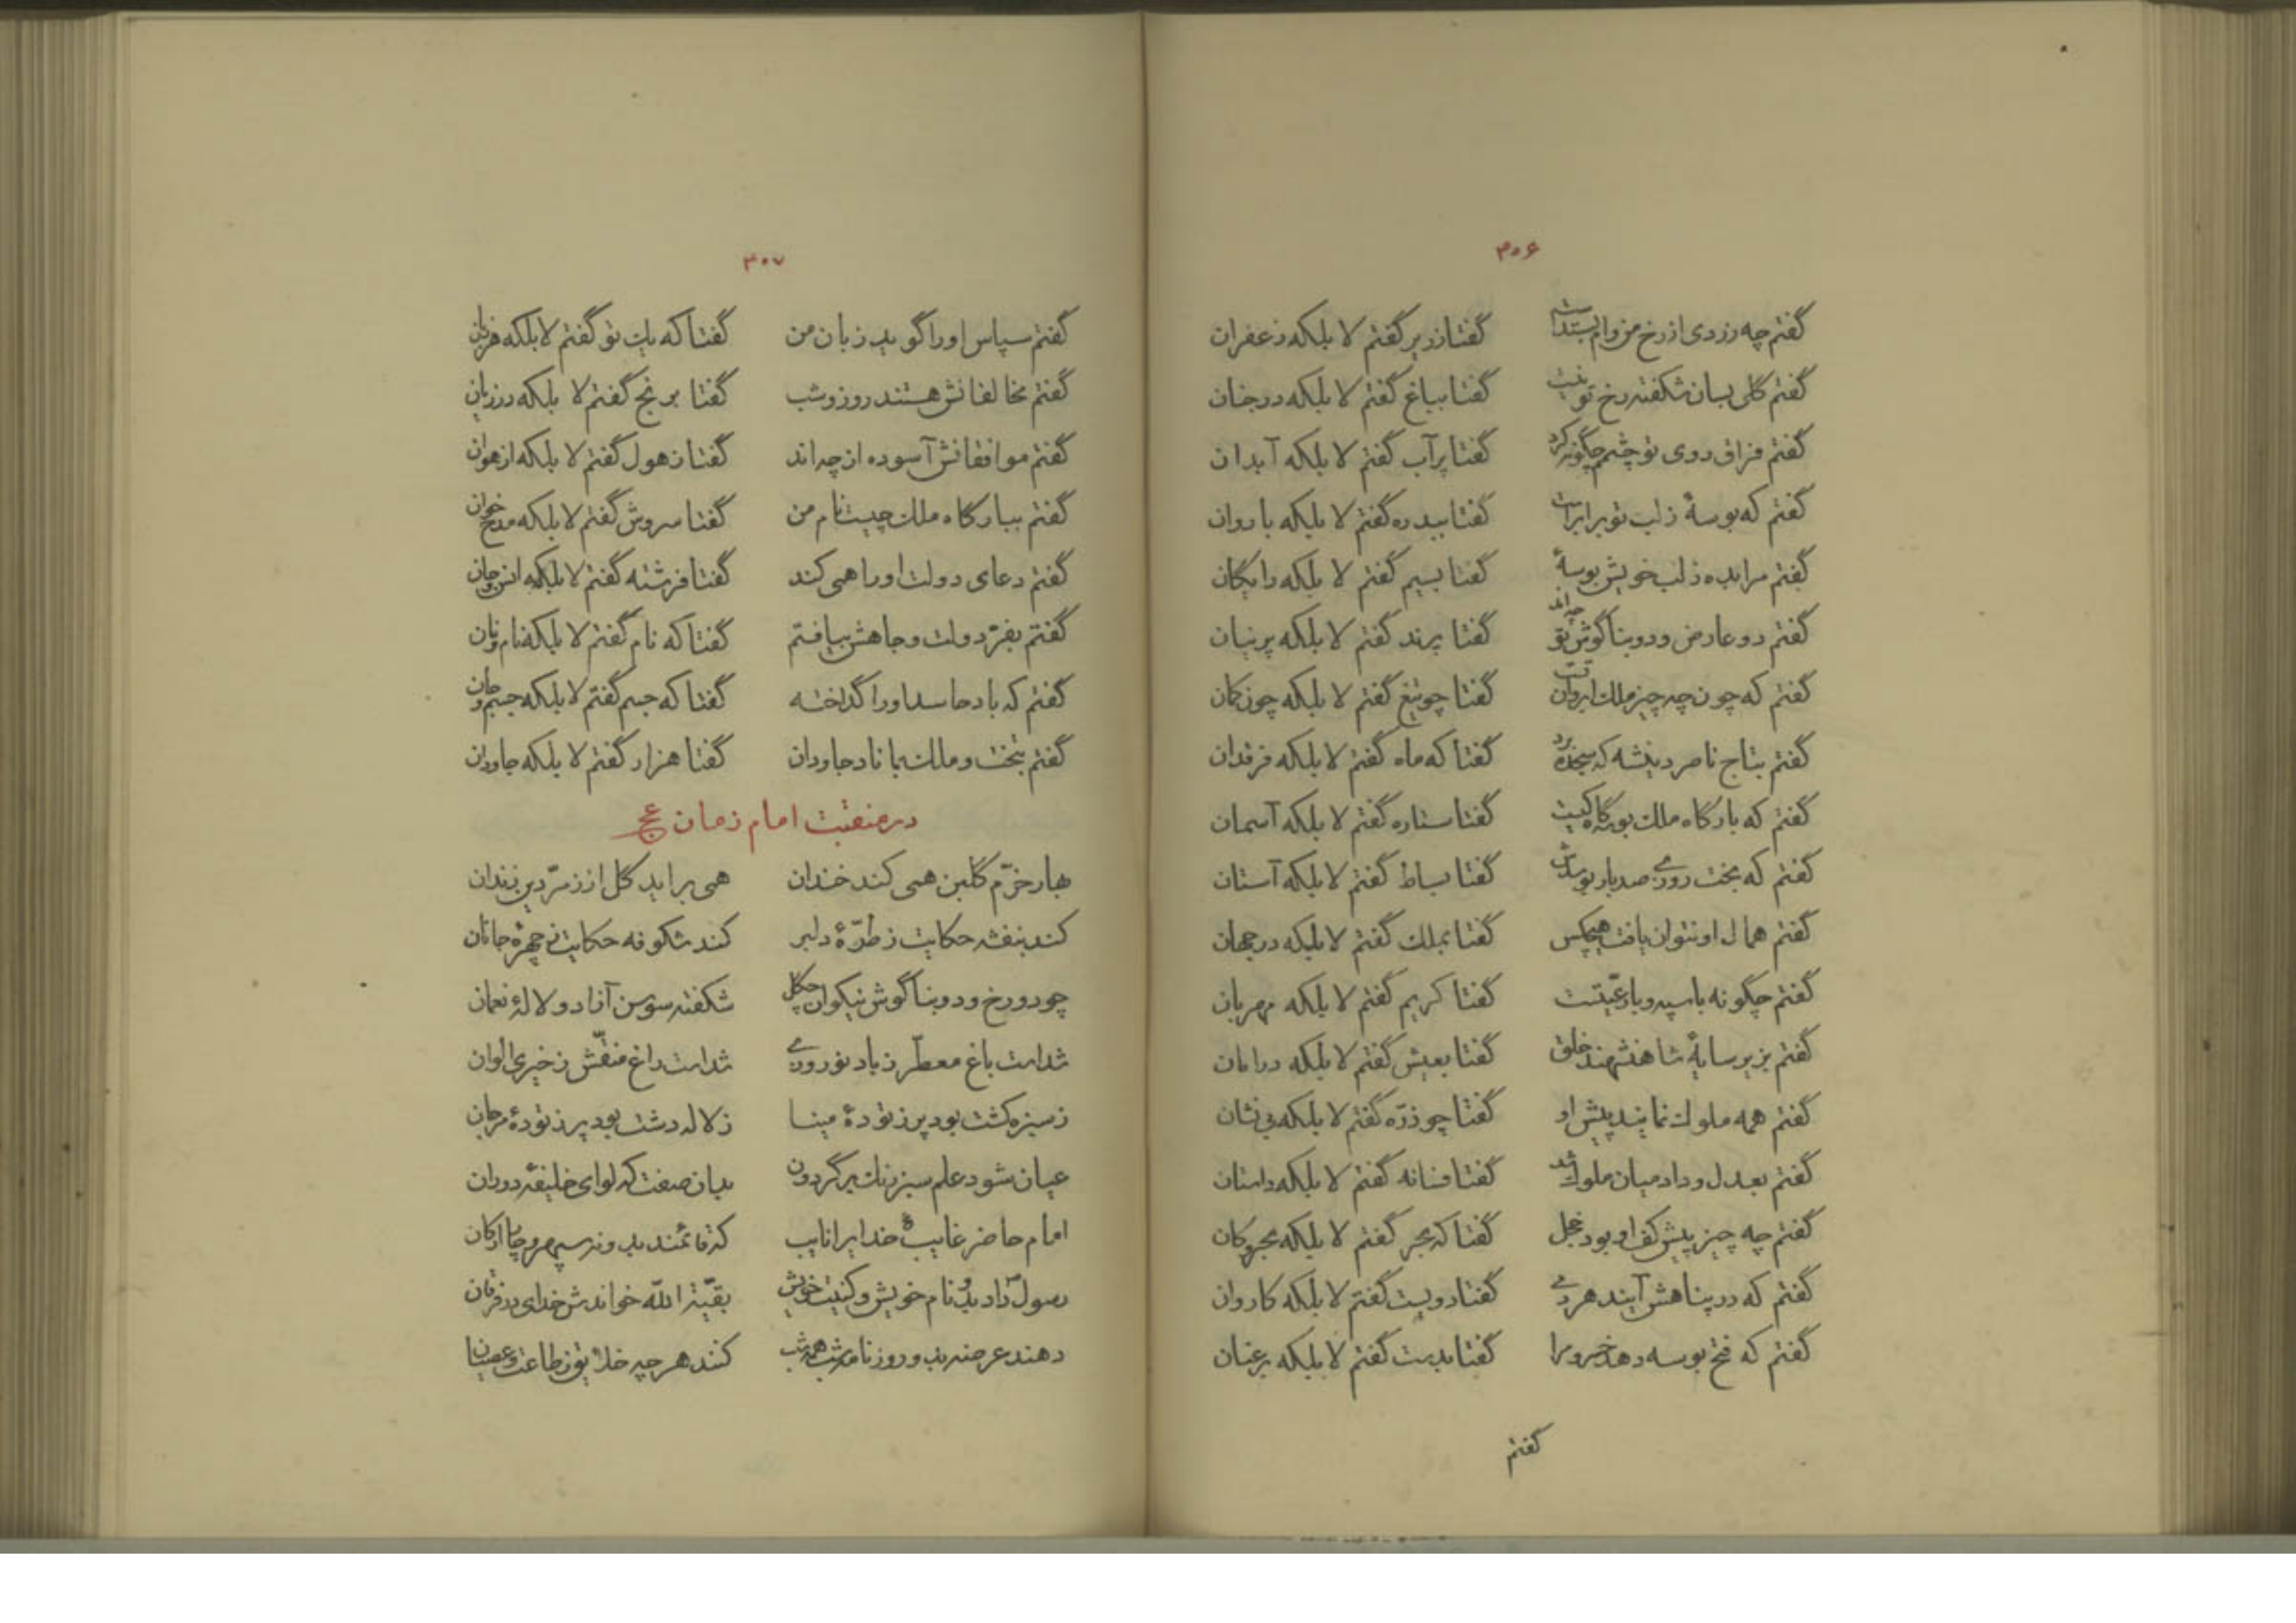 ۳۰۶
گفتم چه زردی از رخ من وام بستداست گفتا زریر گفتم لا بلکه زعفران
گفتم گلی بسان شکفته رخ تو نیست گفتا بباغ گفتم لا بلکه در جنان
گفتم فراق روی تو چشمم چگونه کرد گفتا پرآب گفتم لا بلکه آبدان
گفتم که بوسهٔ ز لب تو برابر است گفتا ببدره گفتم لا بلکه با روان
گفتم مرا بده ز لب خویش بوسهٔ گفتا بسیم گفتم لا بلکه رایگان
گفتم دو عارض و دو بناگوش تو چه‌اند گفتا پرند گفتم لا بلکه پرنیان
گفتم که چون چه چیز ملک ابروان تست گفتا چو تیغ گفتم لا بلکه چون کمان
گفتم بتاج ناصر دین شه که سجده برد گفتا که ماه گفتم لا بلکه فرقدان
گفتم که بارگاه ملک بوسه‌گاه کیست گفتا ستاره گفتم لا بلکه آسمان
گفتم که بخت روزی صد بار بوسدش گفتا بساط گفتم لا بلکه آستان
گفتم همال او نتوان یافت هیچکس گفتا بملک گفتم لا بلکه در جهان
گفتم چگونه با سپه و با رعیّتست گفتا کریم گفتم لا بلکه مهربان
گفتم بزیر سایهٔ شاهنشهند خلق گفتا بعیش گفتم لا بلکه در امان
گفتم همه ملوک نمایند پیش او گفتا چو ذرّه گفتم لا بلکه بی نشان
گفتم بعدل و داد میان ملوک شد گفتا فسانه گفتم لا بلکه داستان
گفتم چه چیز پیش کف او بود خجل گفتا که بحر گفتم لا بلکه بحر و کان
گفتم که در پناهش آیند هر دمی گفتا دویست گفتم لا بلکه کاروان
گفتم که فتح بوسه دهد خسرو را گفتا بدست گفتم لا بلکه بر عنان
گفتم
۳۰۷
گفتم سپاس او را گوید زبان من گفتا که یک تو گفتم لا بلکه هر زبان
گفتم مخالفانش هستند روز و شب گفتا برنج گفتم لا بلکه در زیان
گفتم موافقانش آسوده از چه‌اند گفتا ز هول گفتم لا بلکه از هوان
گفتم ببارگاه ملک چیست نام من گفتا سروش گفتم لا بلکه مدح خوان
گفتم دعای دولت او را همی کند گفتا فرشته گفتم لا بلکه انس و جان
گفتم بفرّ دولت و جاهش بیافتم گفتا که نام گفتم لا بلکه نام و نان
گفتم که باد حاسد او را گداخته گفتا که جسم گفتم لا بلکه جسم و جان
گفتم بتخت و ملک بماناد جاودان گفتا هزار گفتم لا بلکه جاودان
در منقبت امام زمان عج
بهار خرّم گلبن همی کند خندان همی برآید گل از زمرّدین زندان
کند بنفشه حکایت ز طرّهٔ دلبر کند شکوفه حکایت ز چهرهٔ جانان
چو دو رخ و دو بناگوش نیکوان چگل شکفته سوسن آزاد و لالهٔ نعمان
شداست باغ معطّر ز باد نوروزی شداست راغ منقّش ز خیری الوان
ز سبزه کشت بود پر ز تودهٔ مینا ز لاله دشت بود پر ز تودهٔ مرجان
عیان شود علم سبز رنگ بر گردون بدان صفت که لوای خلیفهٔ دوران
امام حاضر غایب خدایرا نایب که قائمند بدو نه سپهر و چار ارکان
رسول داد بدو نام خویش و کنیت خویش بقیّة الله خواندش خدای در فرقان
دهند عرضه بدو روزنامه شب همه شب کنند هر چه خلایق ز طاعت و عصیان